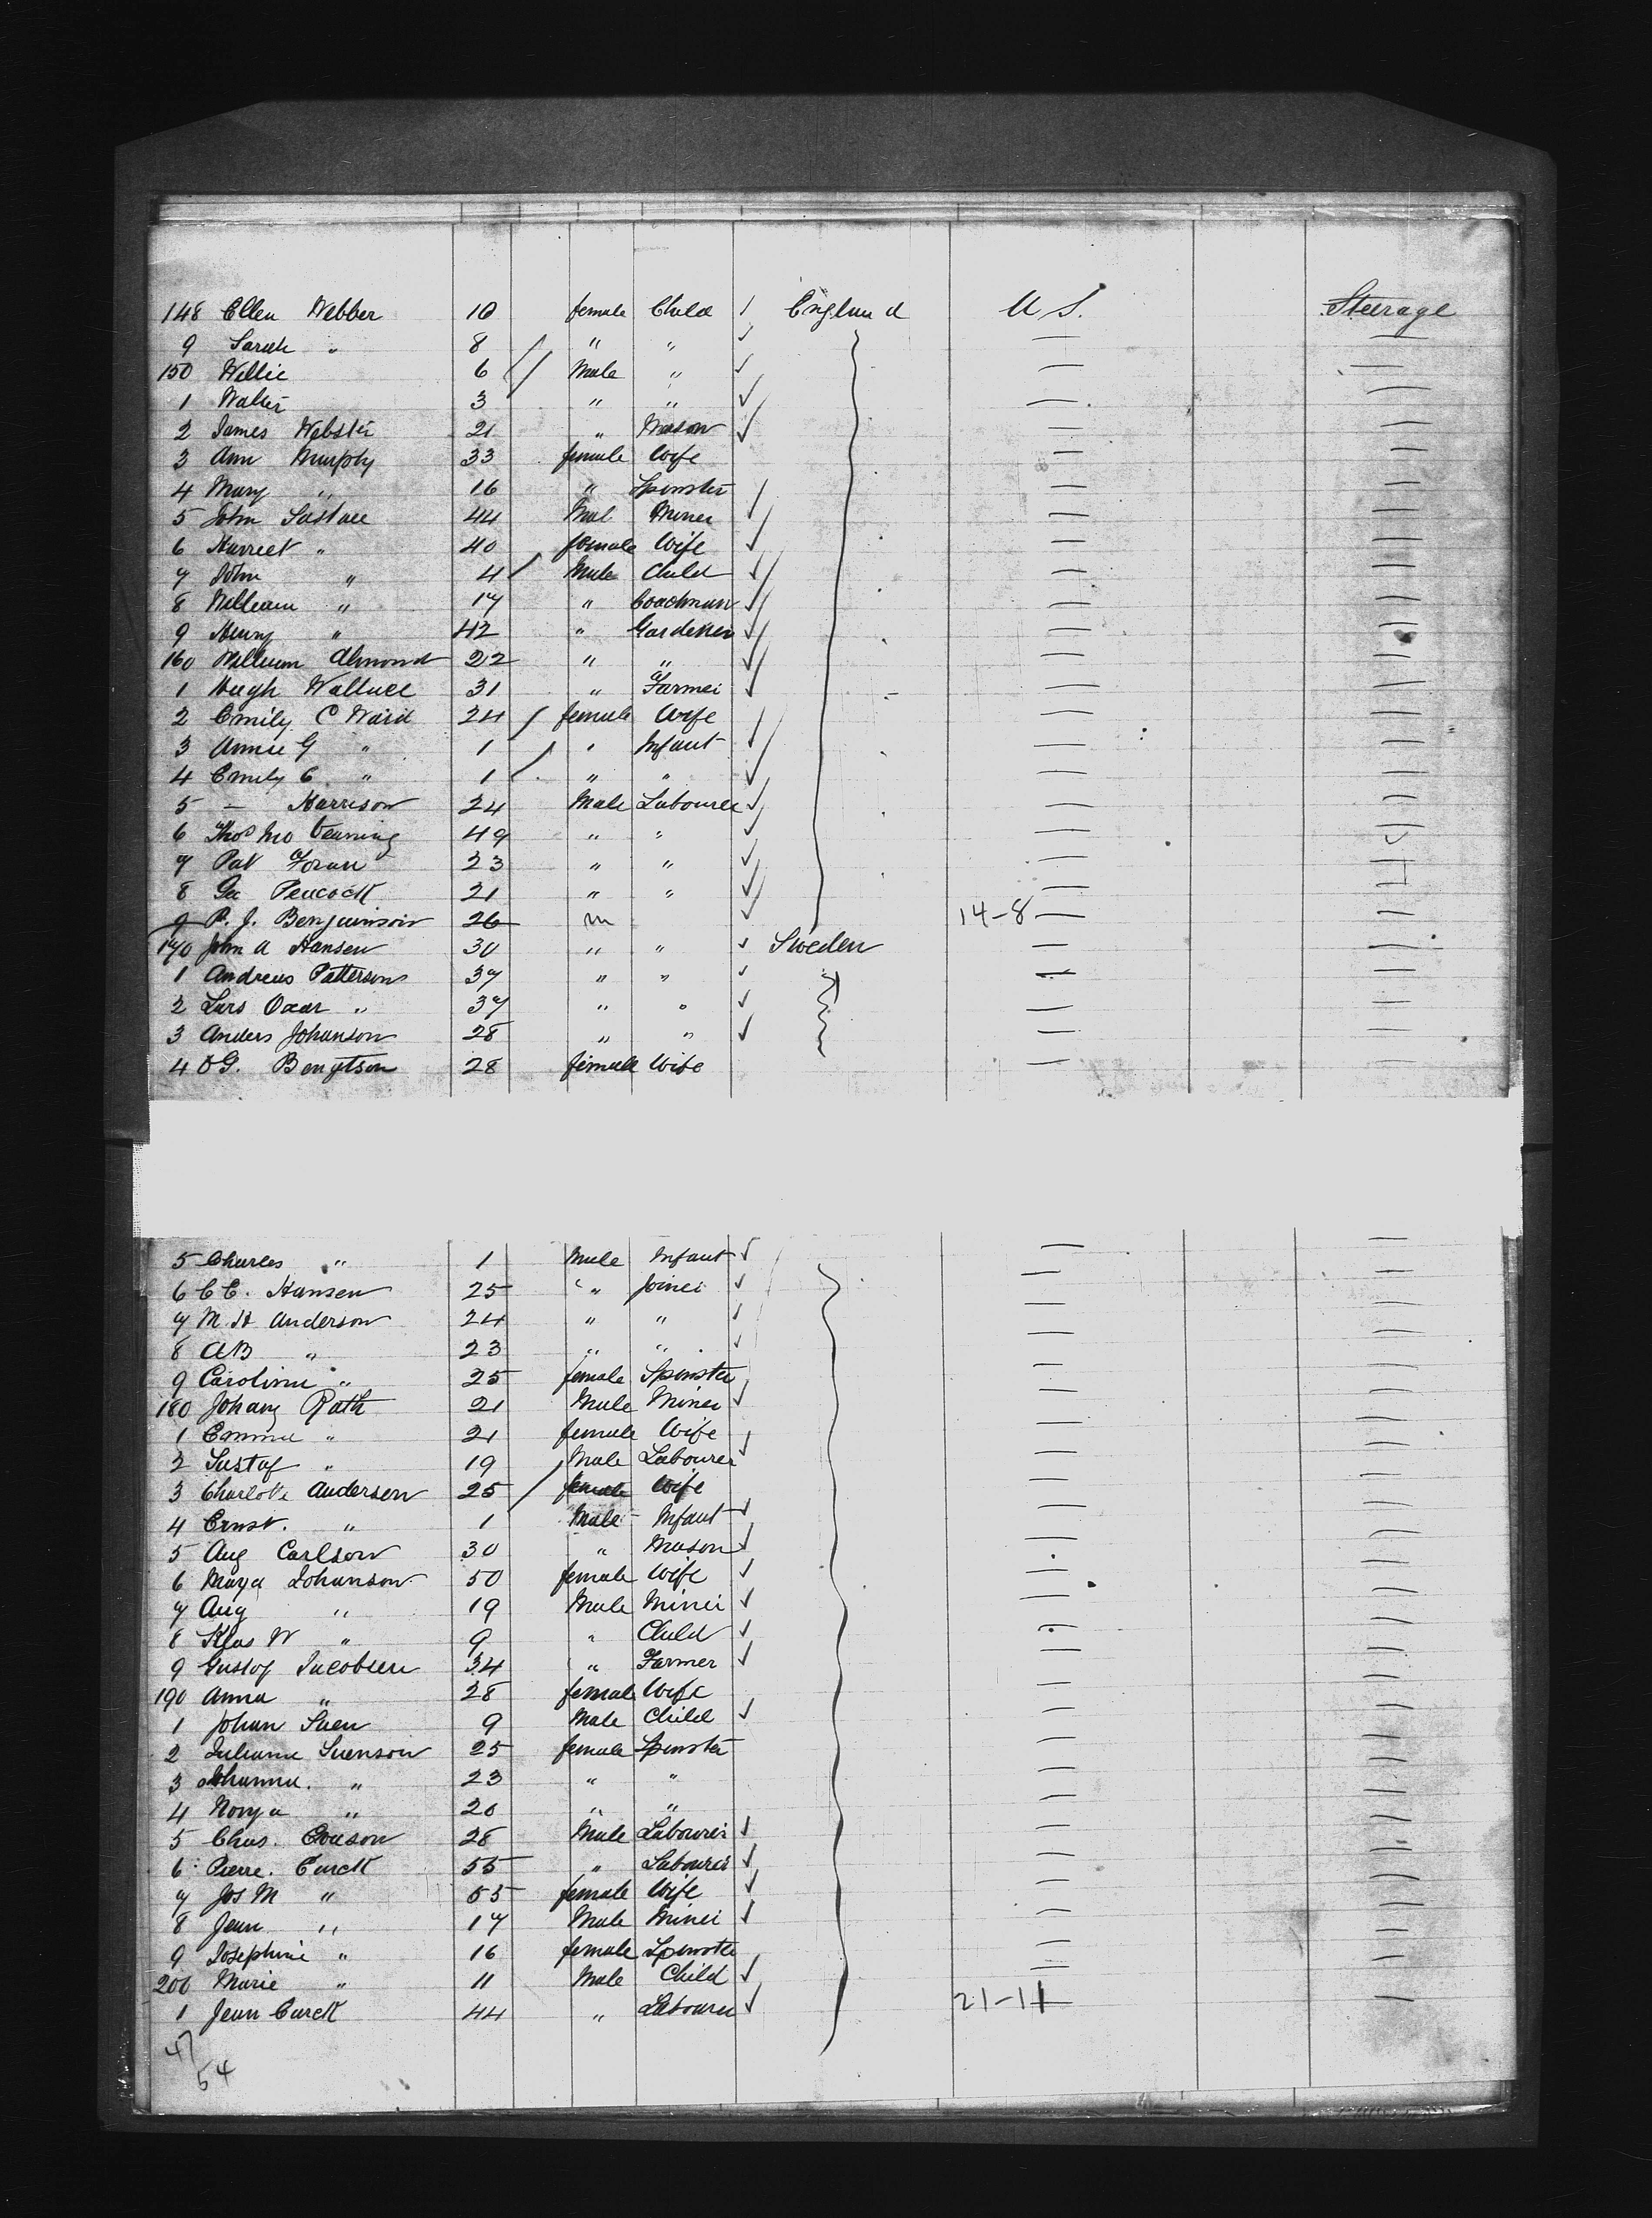 148 Ellen Webber 10 female Child England U S. Steerage
9 Sarah " 8 " "
150 Willie 6 Male "
1 Walter 3 " "
2 James Webster 21 " Mason
3 Ann Murphy 33 female Wife
4 Mary " 16 " Spinster
5 John 44 Mal Miner
6 Harriet " 40 female Wife
7 John " 4 Male Child
8 William " 17 " Coachman
9 Henry " 42 " Gardener
160 William Almond 22 " "
1 Hugh Wallace 31 " Farmer
2 Emily C Ward 24 female Wife
3 Annie G " 1 " Infant
4 Emily C " 1 " "
5 — Harrison 24 Male Labourer
6 Thos 49 " "
7 Pat Foran 23 " "
8 Peacock 21 " "
9 P. J. Benjaminson 26 m 14-8
170 John A Hansen 30 " " Sweden
1 Andreas Patterson 37 " "
2 Lars Oscar " 37 " "
3 Anders Johanson 28 " "
4 O G. Bengtson 28 female Wife
5 Charles " 1 Male Infant
6 C E. Hansen 25 " Joiner
7 M. H Anderson 24 " "
8 A B " 23 " "
9 Caroline " 25 female Spinster
180 Rath 21 Male Miner
1 Emma " 21 female Wife
2 Gustaf " 19 Male Labourer
3 Charlotte Andersen 25 female Wife
4 Ernst. " 1 Male Infant
5 Aug Carlson 30 " Mason
6 Maya Johanson 50 female Wife
7 Aug " 19 Male Miner
8 Klas W " 9 " Child
9 Gustof Jacobsen 34 " Farmer
190 Anna " 28 female Wife
1 Johan Suen 9 Male Child
2 Juliana Suenson 25 female Spinster
3 Johanna. " 23 " "
4 " 20 " "
5 Chas. 28 Male Labourer
6 Pierre. Carck 55 " Labourer
7 Jos M " 55 female Wife
8 Jean " 17 Male Miner
9 Josephine " 16 female Spinster
200 Marie " 11 Male Child
1 Jean Carck 44 " Labourer 21-11
47
54